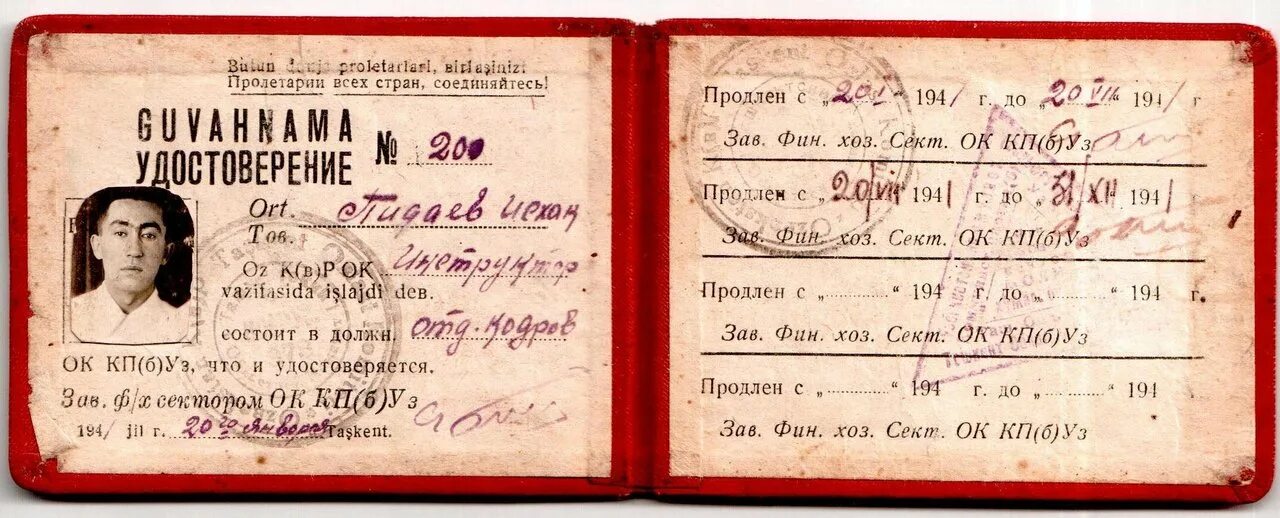 Bütun dunja proletarlari, birlaşiniz!
Пролетарии всех стран, соединяйтесь!
GUVAHNAMA
УДОСТОВЕРЕНИЕ
№ 200
Ort. Пидаев Исхак
Тов.
Oz K(в)P OK Инструктор
vazifasida işlajdi dев.
состоит в должн. отд. кадров
ОК КП(б)Уз, что и удостоверяется.
Зав. ф/х сектором ОК КП(б)Уз
1941 jil г. 20го января Taşkent.
Продлен с „20/I“ 1941 г. до „20 VII“ 1941 г
Зав. Фин. хоз. Сект. ОК КП(б)Уз
Продлен с „20/VII 1941 г. до „31/XII 1941 г
Зав. Фин. хоз. Сект. ОК КП(б)Уз
Продлен с „............“ 194 г. до „............“ 194 г.
Зав. Фин. хоз. Сект. ОК КП(б)Уз
Продлен с „............“ 194 г. до „............“ 194
Зав. Фин. хоз. Сект. ОК КП(б)Уз